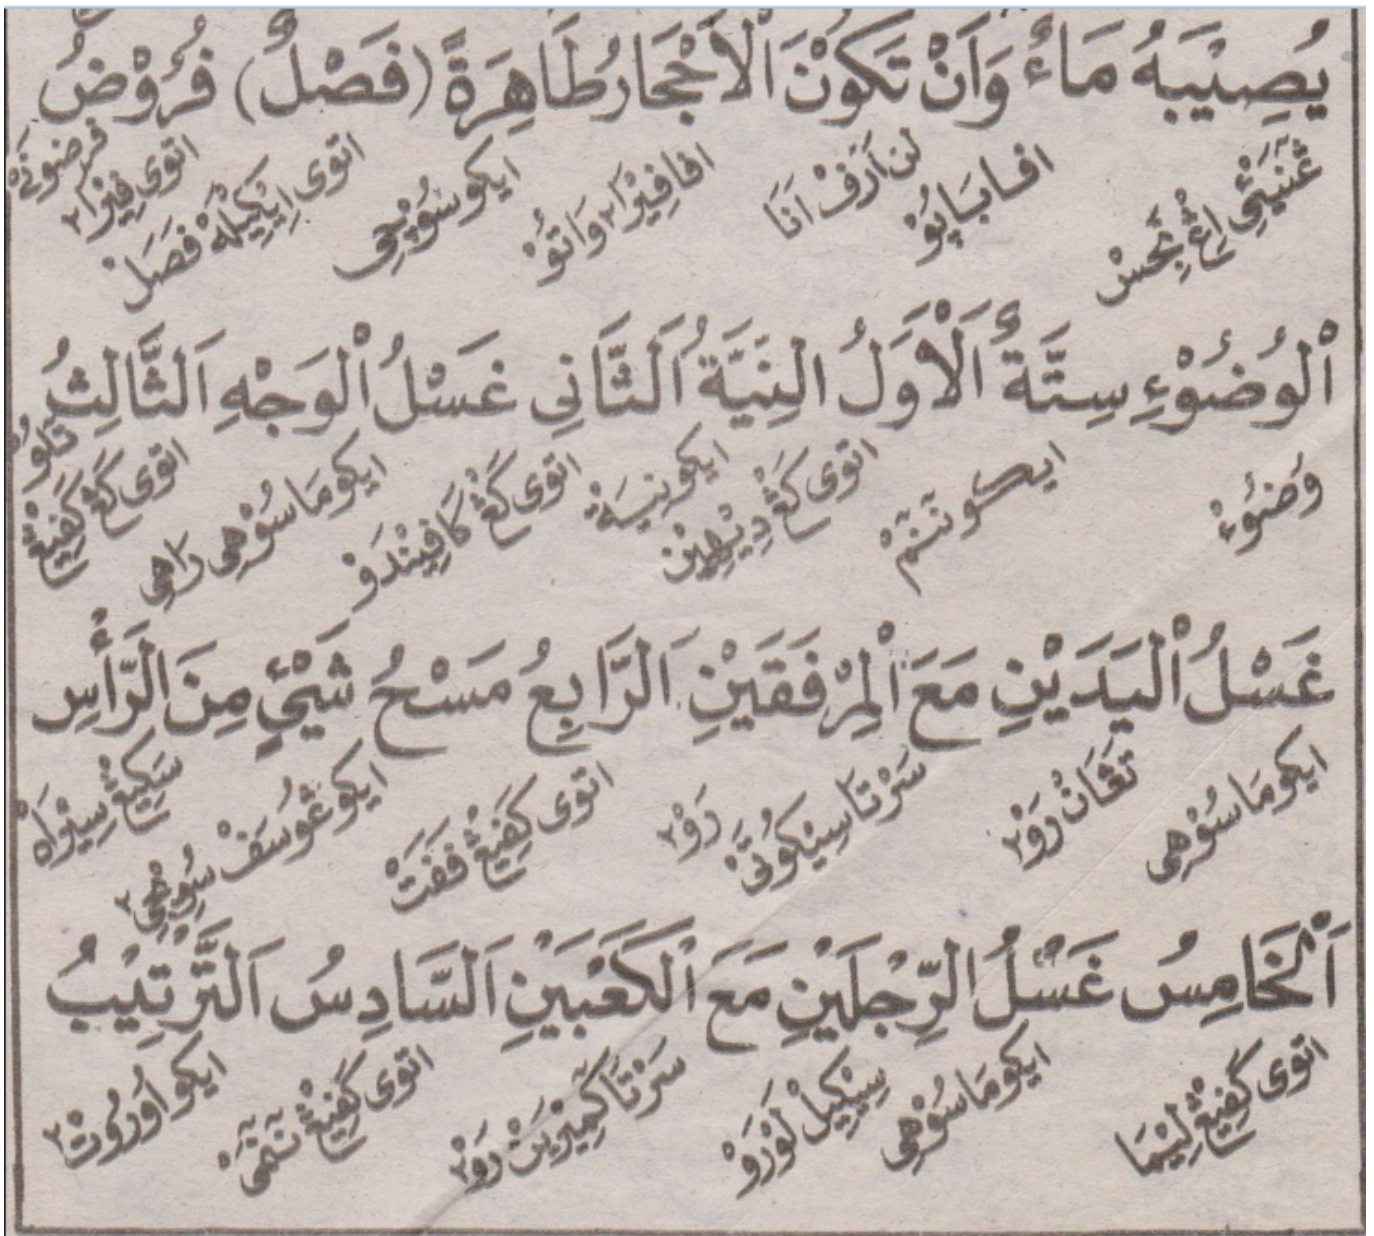 يُصِيْبَهُ مَاءٌ وَاَنْ تَكُوْنَ الْاَحْجَارُ طَاهِرَةً (فَصْلٌ) فُرُوْضُ
غنيني اغ نجس افا بايو لن ارف انا افا فيرا٢ واتو ايكو سوجي اتوى ايكيله فصل اتوى فيرا٢ فرضوني
اْلوُضُوْءِ سِتَّةٌ اَلْاَوَّلُ النِيَّةُ اَلثَّانِى غَسْلُ اْلوَجْهِ اَلثَّالِثُ
وضوء ايكو ننم اتوى كڠ ديهين ايكو نية اتوى كڠ كافيندو ايكو ماسوهى راهى اتوى كڠ كفيڠ تلو
غَسْلُ اْليَدَيْنِ مَعَ اْلمِرْفَقَيْنِ اَلرَّابِعُ مَسْحُ شَيْئٍ مِنَ الرَّأْسِ
ايكو ماسوهى تڠان رو٢ سرتا سيكوتى رو٢ اتوى كفيڠ ففت ايكو ڠوسف سويجى٢ سكيڠ سيراه
اَلْخَامِسُ غَسْلُ الرِّجْلَيْنِ مَعَ اْلكَعْبَيْنِ اَلسَّادِسُ اَلتَّرْتِيْبُ
اتوى كفيڠ ليما ايكو ماسوهى سيكيل لورو سرتا كيميريڠ رو٢ اتوى كفيڠ ننمى ايكو اوروت٢